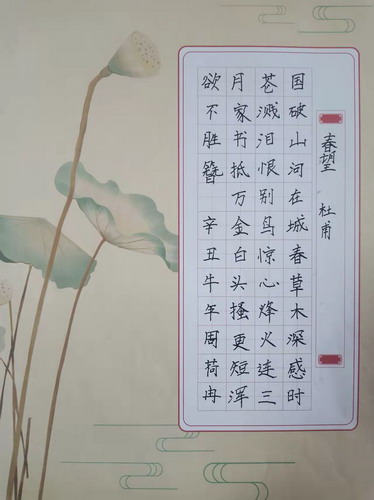 春望 杜甫
国破山河在城春草木深感时
苍溅泪恨别鸟惊心烽火连三
月家书抵万金白头搔更短浑
欲不胜簪 辛丑牛年周荷冉